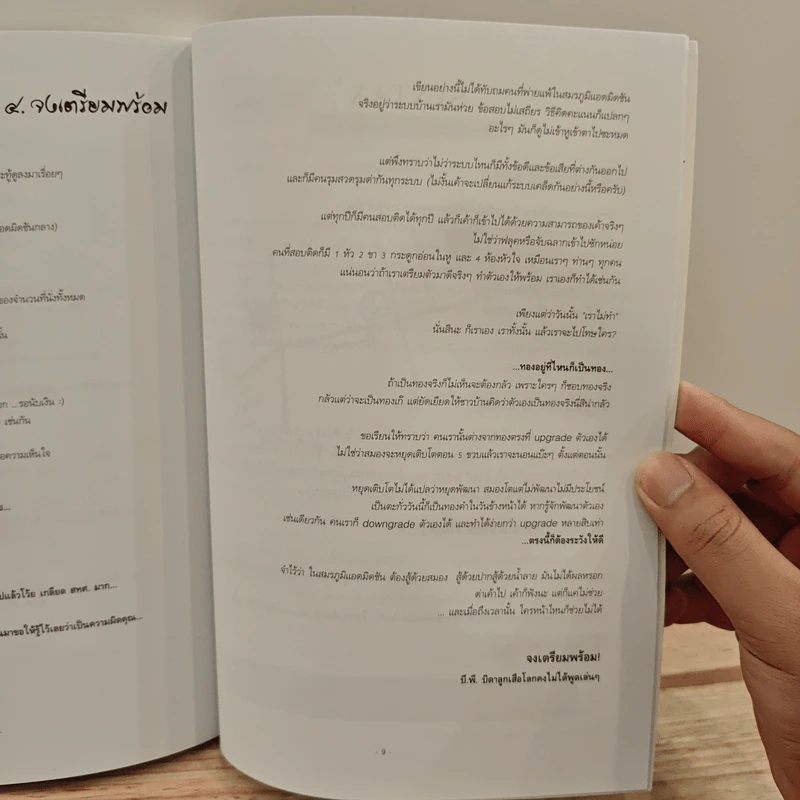 ๔. จงเตรียมพร้อม
ะทู้ดูลงมาเรื่อยๆ
อดมิดชันกลาง)
ของจำนวนที่นั่งทั้งหมด
ั้น
ก ...รอนับเงิน :)
เช่นกัน
อความเห็นใจ
ปแล้วโว้ย เกลียด สทศ. มาก...
นมาขอให้รู้ไว้เลยว่าเป็นความผิดคุณ...
เขียนอย่างนี้ไม่ได้ทับถมคนที่พ่ายแพ้ในสมรภูมิแอดมิดชัน
จริงอยู่ว่าระบบบ้านเรามันห่วย ข้อสอบไม่เสถียร วิธีคิดคะแนนก็แปลกๆ
อะไรๆ มันก็ดูไม่เข้าหูเข้าตาไปซะหมด
แต่พึงทราบว่าไม่ว่าระบบไหนก็มีทั้งข้อดีและข้อเสียที่ต่างกันออกไป
และก็มีคนรุมสวดรุมด่ากันทุกระบบ (ไม่งั้นเค้าจะเปลี่ยนแก้ระบบเคล็ดกันอย่างนี้หรือครับ)
แต่ทุกปีก็มีคนสอบติดได้ทุกปี แล้วก็เค้าก็เข้าไปได้ด้วยความสามารถของเค้าจริงๆ
ไม่ใช่ว่าฟลุคหรือจับฉลากเข้าไปซักหน่อย
คนที่สอบติดก็มี 1 หัว 2 ขา 3 กระดูกอ่อนในหู และ 4 ห้องหัวใจ เหมือนเราๆ ท่านๆ ทุกคน
แน่นอนว่าถ้าเราเตรียมตัวมาดีจริงๆ ทำตัวให้พร้อม เราเองก็ทำได้เช่นกัน
เพียงแต่ว่าวันนั้น "เราไม่ทำ"
นั่นสินะ ก็เราเอง เราทั้งนั้น แล้วเราจะไปโทษใคร?
...ทองอยู่ที่ไหนก็เป็นทอง...
ถ้าเป็นทองจริงก็ไม่เห็นจะต้องกลัว เพราะใครๆ ก็ชอบทองจริง
กลัวแต่ว่าจะเป็นทองเก๊ แต่ยัดเยียดให้ชาวบ้านคิดว่าตัวเองเป็นทองจริงนี่สิน่ากลัว
ขอเรียนให้ทราบว่า คนเรานั้นต่างจากทองตรงที่ upgrade ตัวเองได้
ไม่ใช่ว่าสมองจะหยุดเติบโตตอน 5 ขวบแล้วเราจะนอนแบ๊ะๆ ตั้งแต่ตอนนั้น
หยุดเติบโตไม่ได้แปลว่าหยุดพัฒนา สมองโตแต่ไม่พัฒนาไม่มีประโยชน์
เป็นตะกั่ววันนี้ก็เป็นทองคำในวันข้างหน้าได้ หากรู้จักพัฒนาตัวเอง
เช่นเดียวกัน คนเราก็ downgrade ตัวเองได้ และทำได้ง่ายกว่า upgrade หลายสิบเท่า
...ตรงนี้ก็ต้องระวังให้ดี
จำไว้ว่า ในสมรภูมิแอดมิดชัน ต้องสู้ด้วยสมอง สู้ด้วยปากสู้ด้วยน้ำลาย มันไม่ได้ผลหรอก
ด่าเค้าไป เค้าก็ฟังนะ แต่ก็แค่ไม่ช่วย
... และเมื่อถึงเวลานั้น ใครหน้าไหนก็ช่วยไม่ได้
จงเตรียมพร้อม!
บี.พี. บิดาลูกเสือโลกคงไม่ได้พูดเล่นๆ
- 9 -